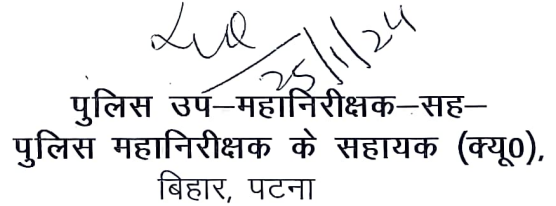 25/1/24
पुलिस उप–महानिरीक्षक–सह–
पुलिस महानिरीक्षक के सहायक (क्यू0),
बिहार, पटना